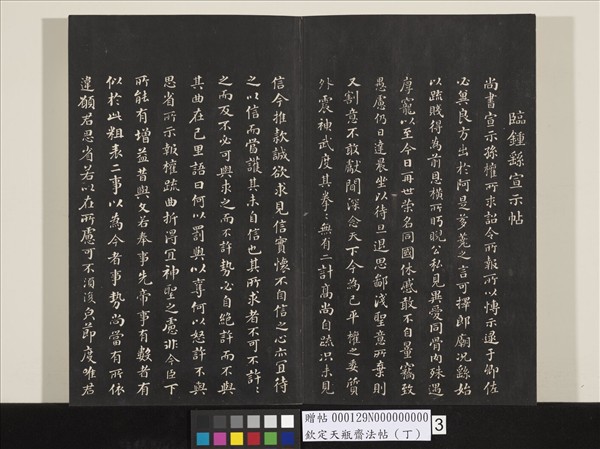 臨鍾繇宣示帖
尚書宣示孫權所求詔令所報所以博示逮于卿佐
必冀良方出於阿是芻蕘之言可擇郎廟況繇始
以疏賤得為前恩橫所盱睨公私見異愛同骨肉殊遇
厚寵以至今日再世榮名同國休慼敢不自量竊致
愚慮仍日達晨坐以待旦退思鄙淺聖意所棄則
又割意不敢獻聞深念天下今為已平權之委質
外震神武度其拳〻無有二計高尚自疏況未見
信今推款誠欲求見信實懷不自信之心亦宜待
之以信而當護其未自信也其所求者不可不許〻
之而反不必可與求之而不許勢必自絕許而不與
其曲在己里語曰何以罰與以奪何以怒許不與
思省所示報權疏曲折得宜神聖之慮非今臣下
所能有增益昔與文若奉事先帝事有數者有
似於此粗表二事以為今者事勢尚當有所依
違願君思省若以在所慮可不須復皃節度唯君
贈帖 000129N000000000
欽定天瓶齋法帖（丁）
3